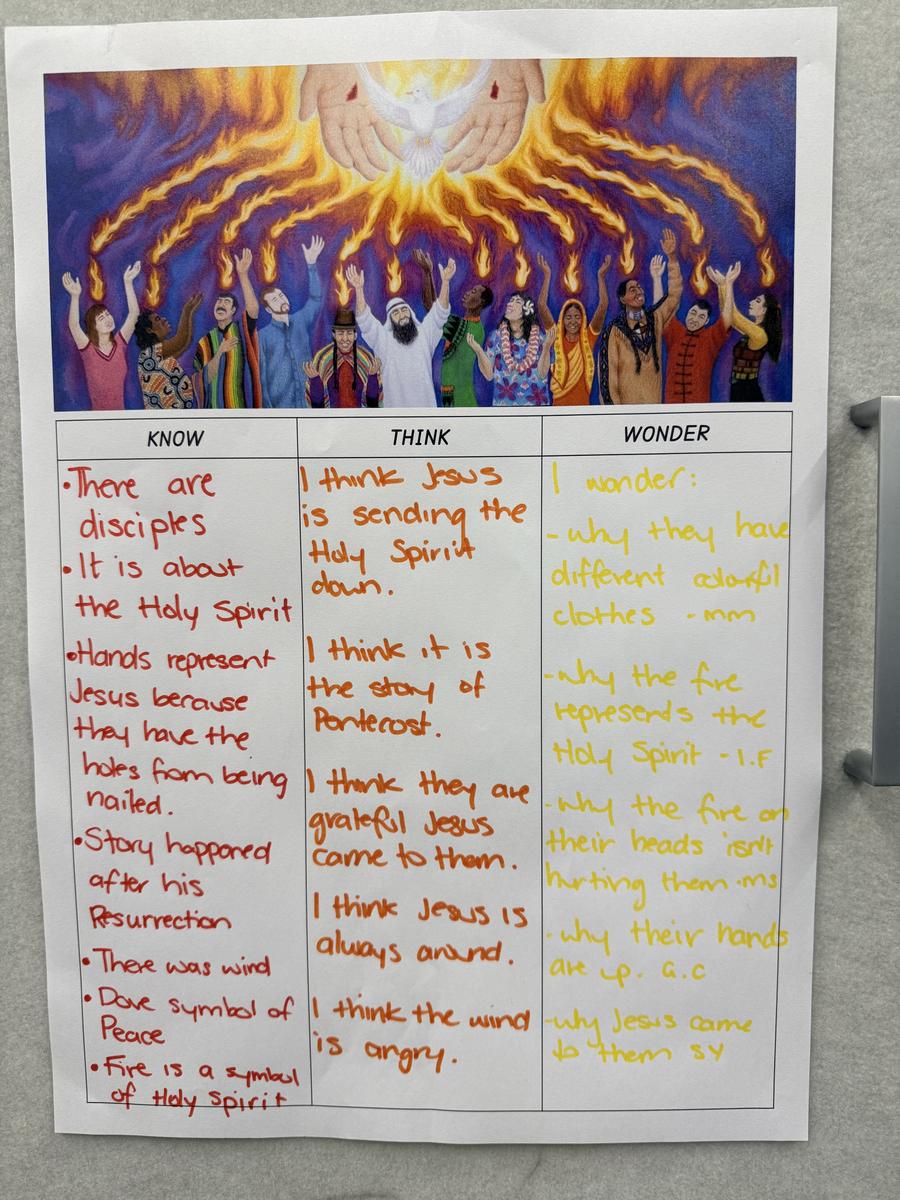 KNOW
THINK
WONDER
•There are
disciples
•It is about
the Holy Spirit
•Hands represent
Jesus because
they have the
holes from being
nailed.
•Story happened
after his
Resurrection
•There was wind
•Dove symbol of
Peace
•Fire is a symbol
of Holy Spirit
I think Jesus
is sending the
Holy Spirit
down.
I think it is
the story of
Pentecost.
I think they are
grateful Jesus
came to them.
I think Jesus is
always around.
I think the wind
is angry.
I wonder:
- why they have
different colorful
clothes - mm
-why the fire
represents the
Holy Spirit - I.F
-why the fire on
their heads isn't
hurting them -ms
-why their hands
are up. G.C
-why Jesus came
to them SY